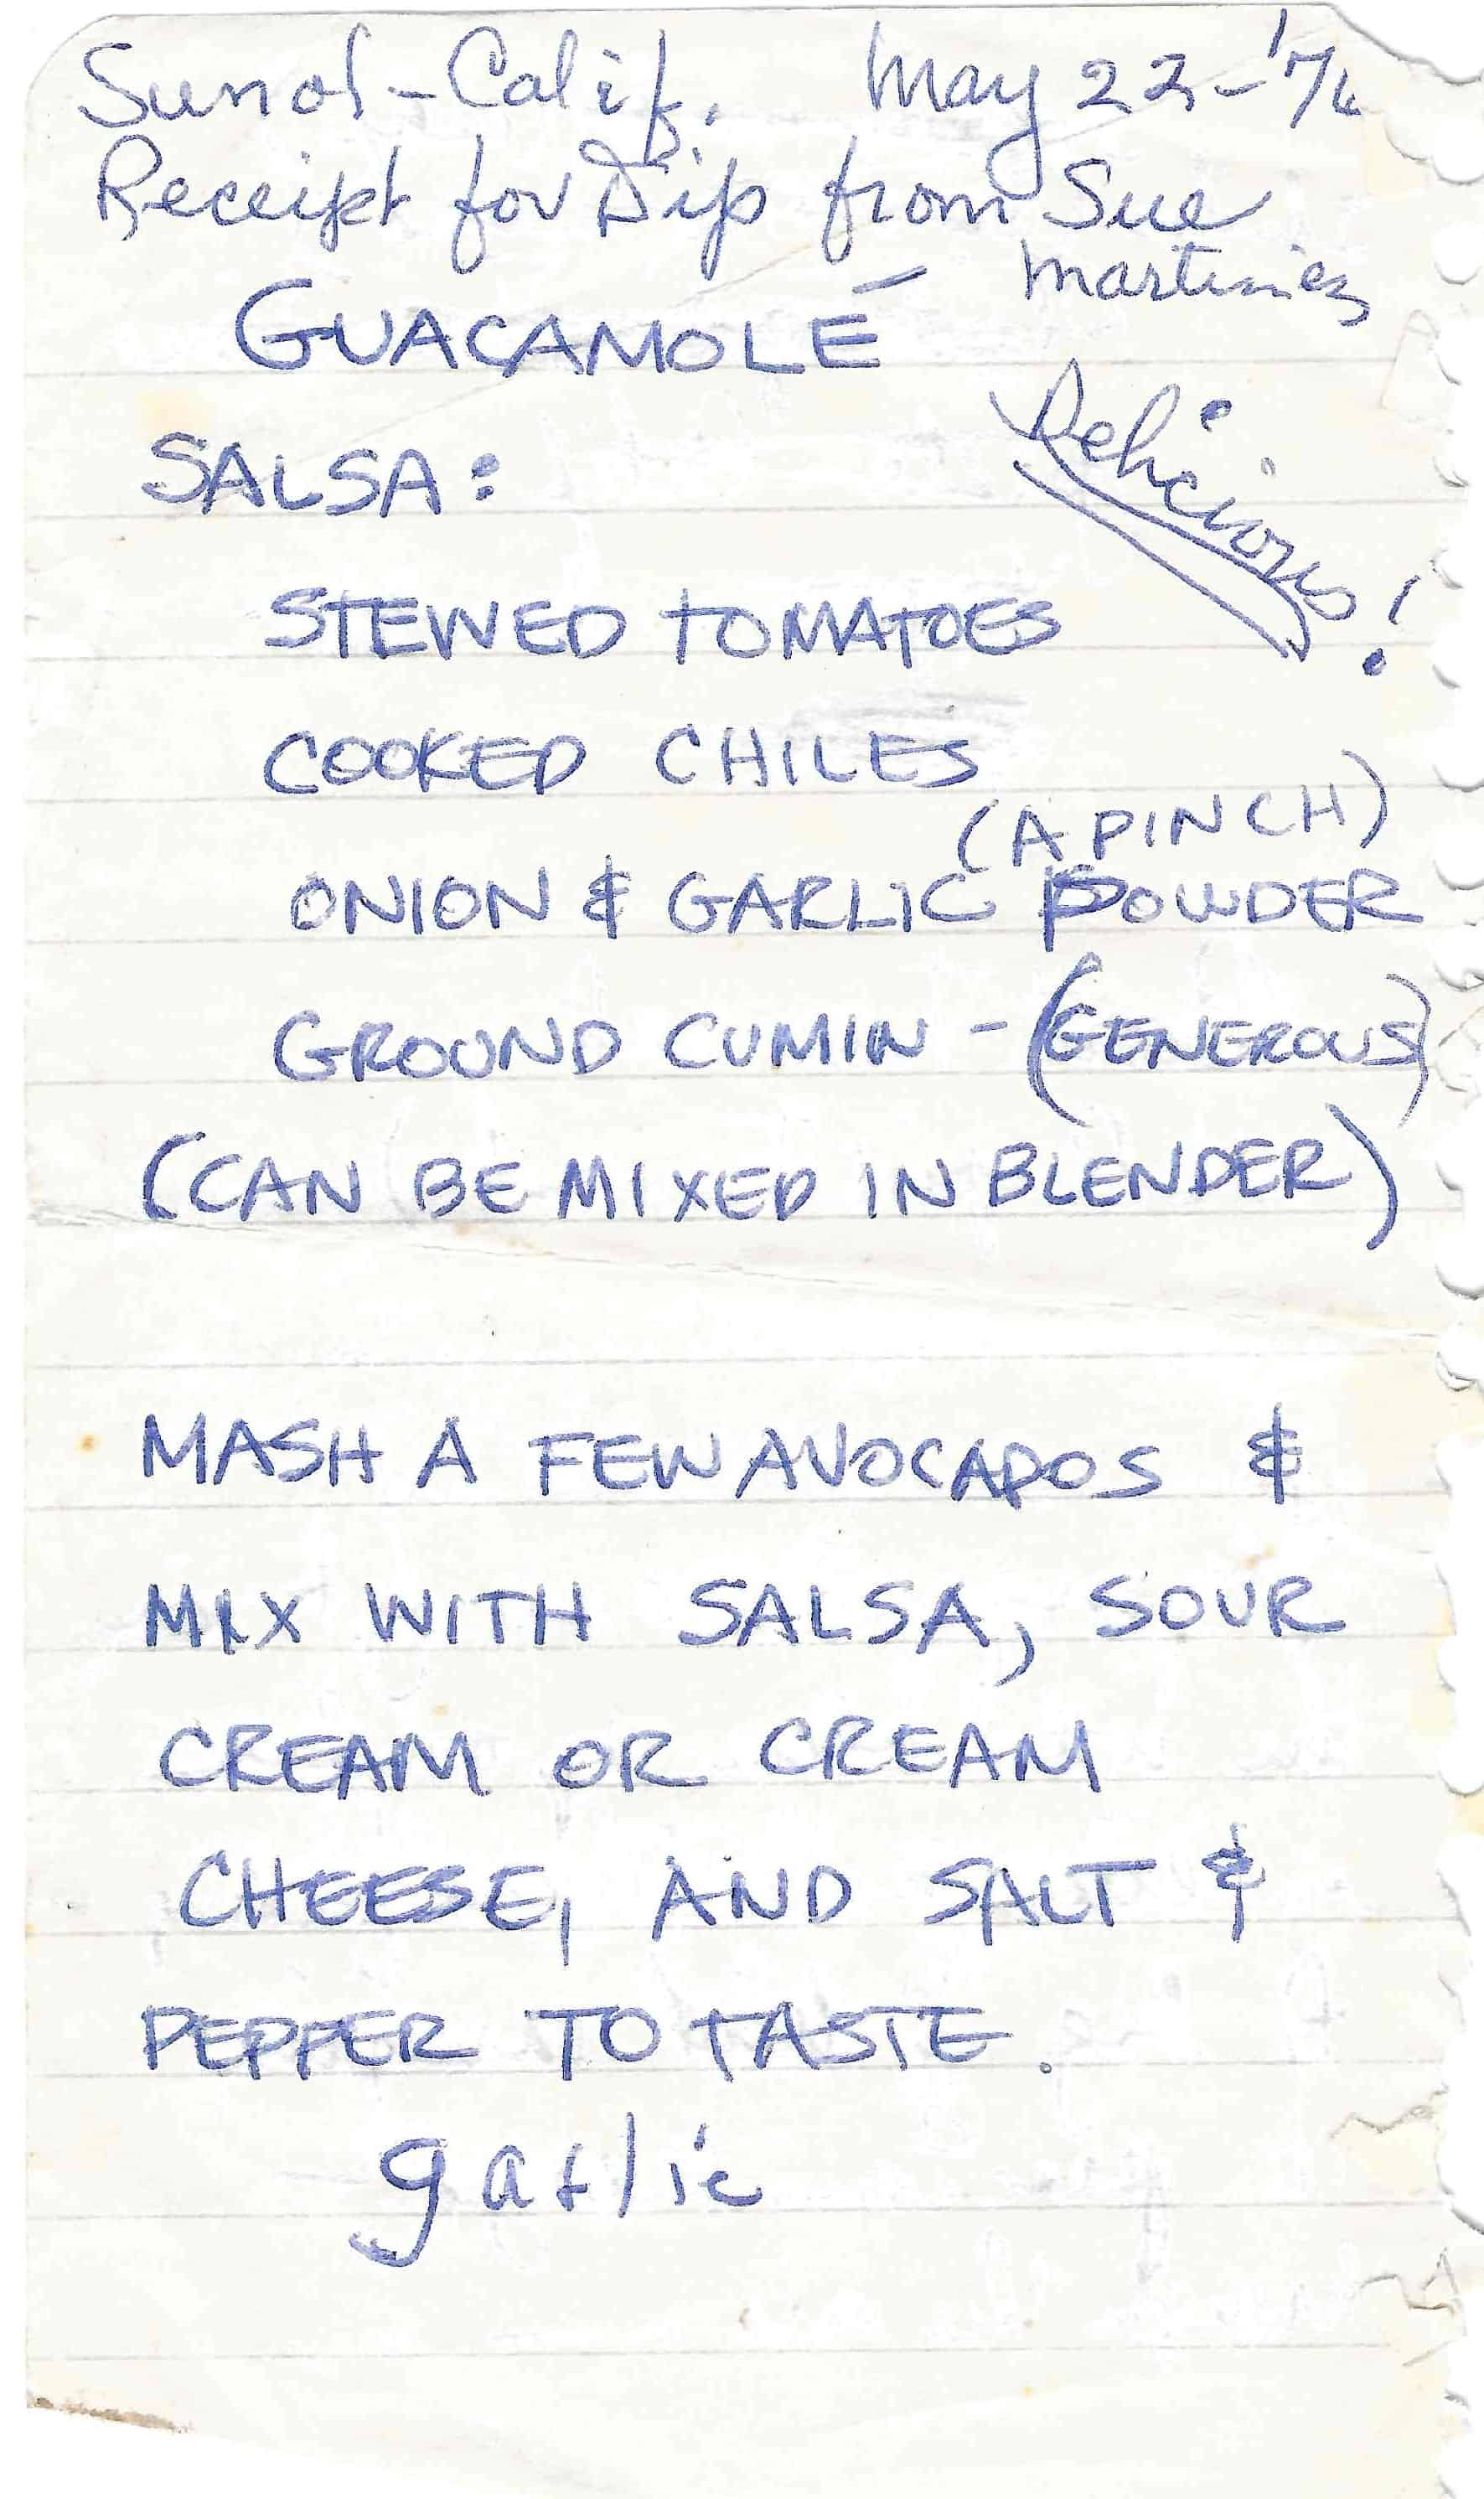 Sunol-Calif. May 22-'76
Receipt for Dip from Sue
Martinez
GUACAMOLÉ
Delicious!
SALSA:
STEWED TOMATOES
COOKED CHILES
(A PINCH)
ONION & GARLIC POWDER
GROUND CUMIN - (GENEROUS)
(CAN BE MIXED IN BLENDER)
MASH A FEW AVOCADOS &
MIX WITH SALSA, SOUR
CREAM OR CREAM
CHEESE, AND SALT &
PEPPER TO TASTE.
garlic